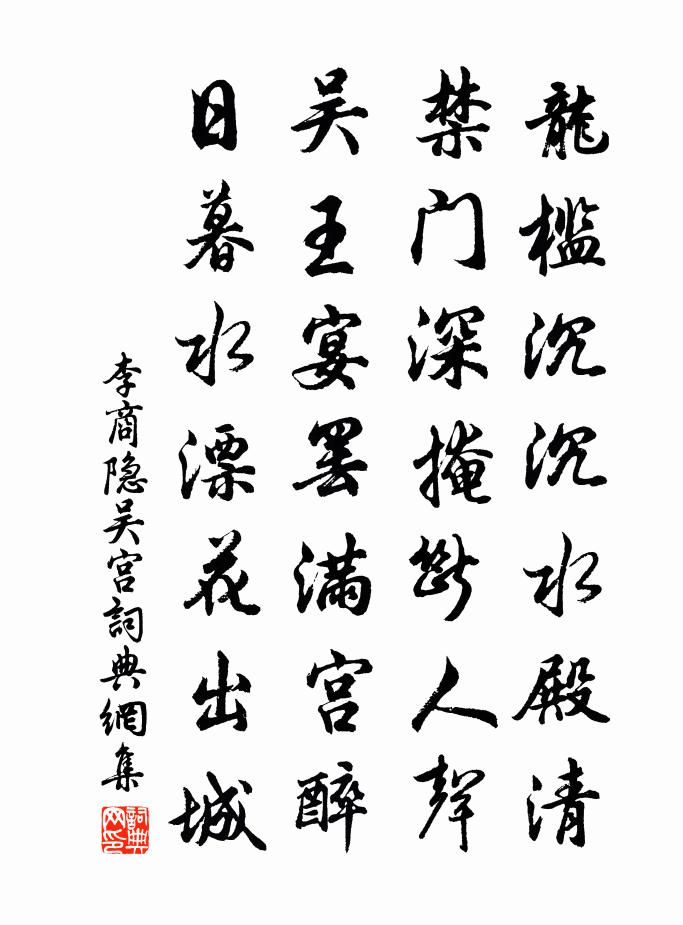 龍檻沉沉水殿清
禁门深掩斷人聲
吴王宴罢满宫醉
日暮水漂花出城
李商隐吴宫詞典網集
詞典网印